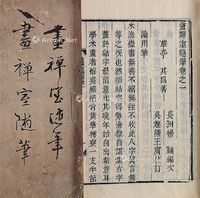 畫禪室隨筆
畫禪室隨筆
畫禪室隨筆卷之一
華亭 董其昌著
長洲楊 補編次
論用筆
米海嶽書無垂不縮無往不收此八字真言無
等等之咒也然須結字得勢海嶽自謂集古字
蓋於結字最留意比其晚年始自出新意耳
學米書者惟吳琚絕肖黃華樗寮一支半節